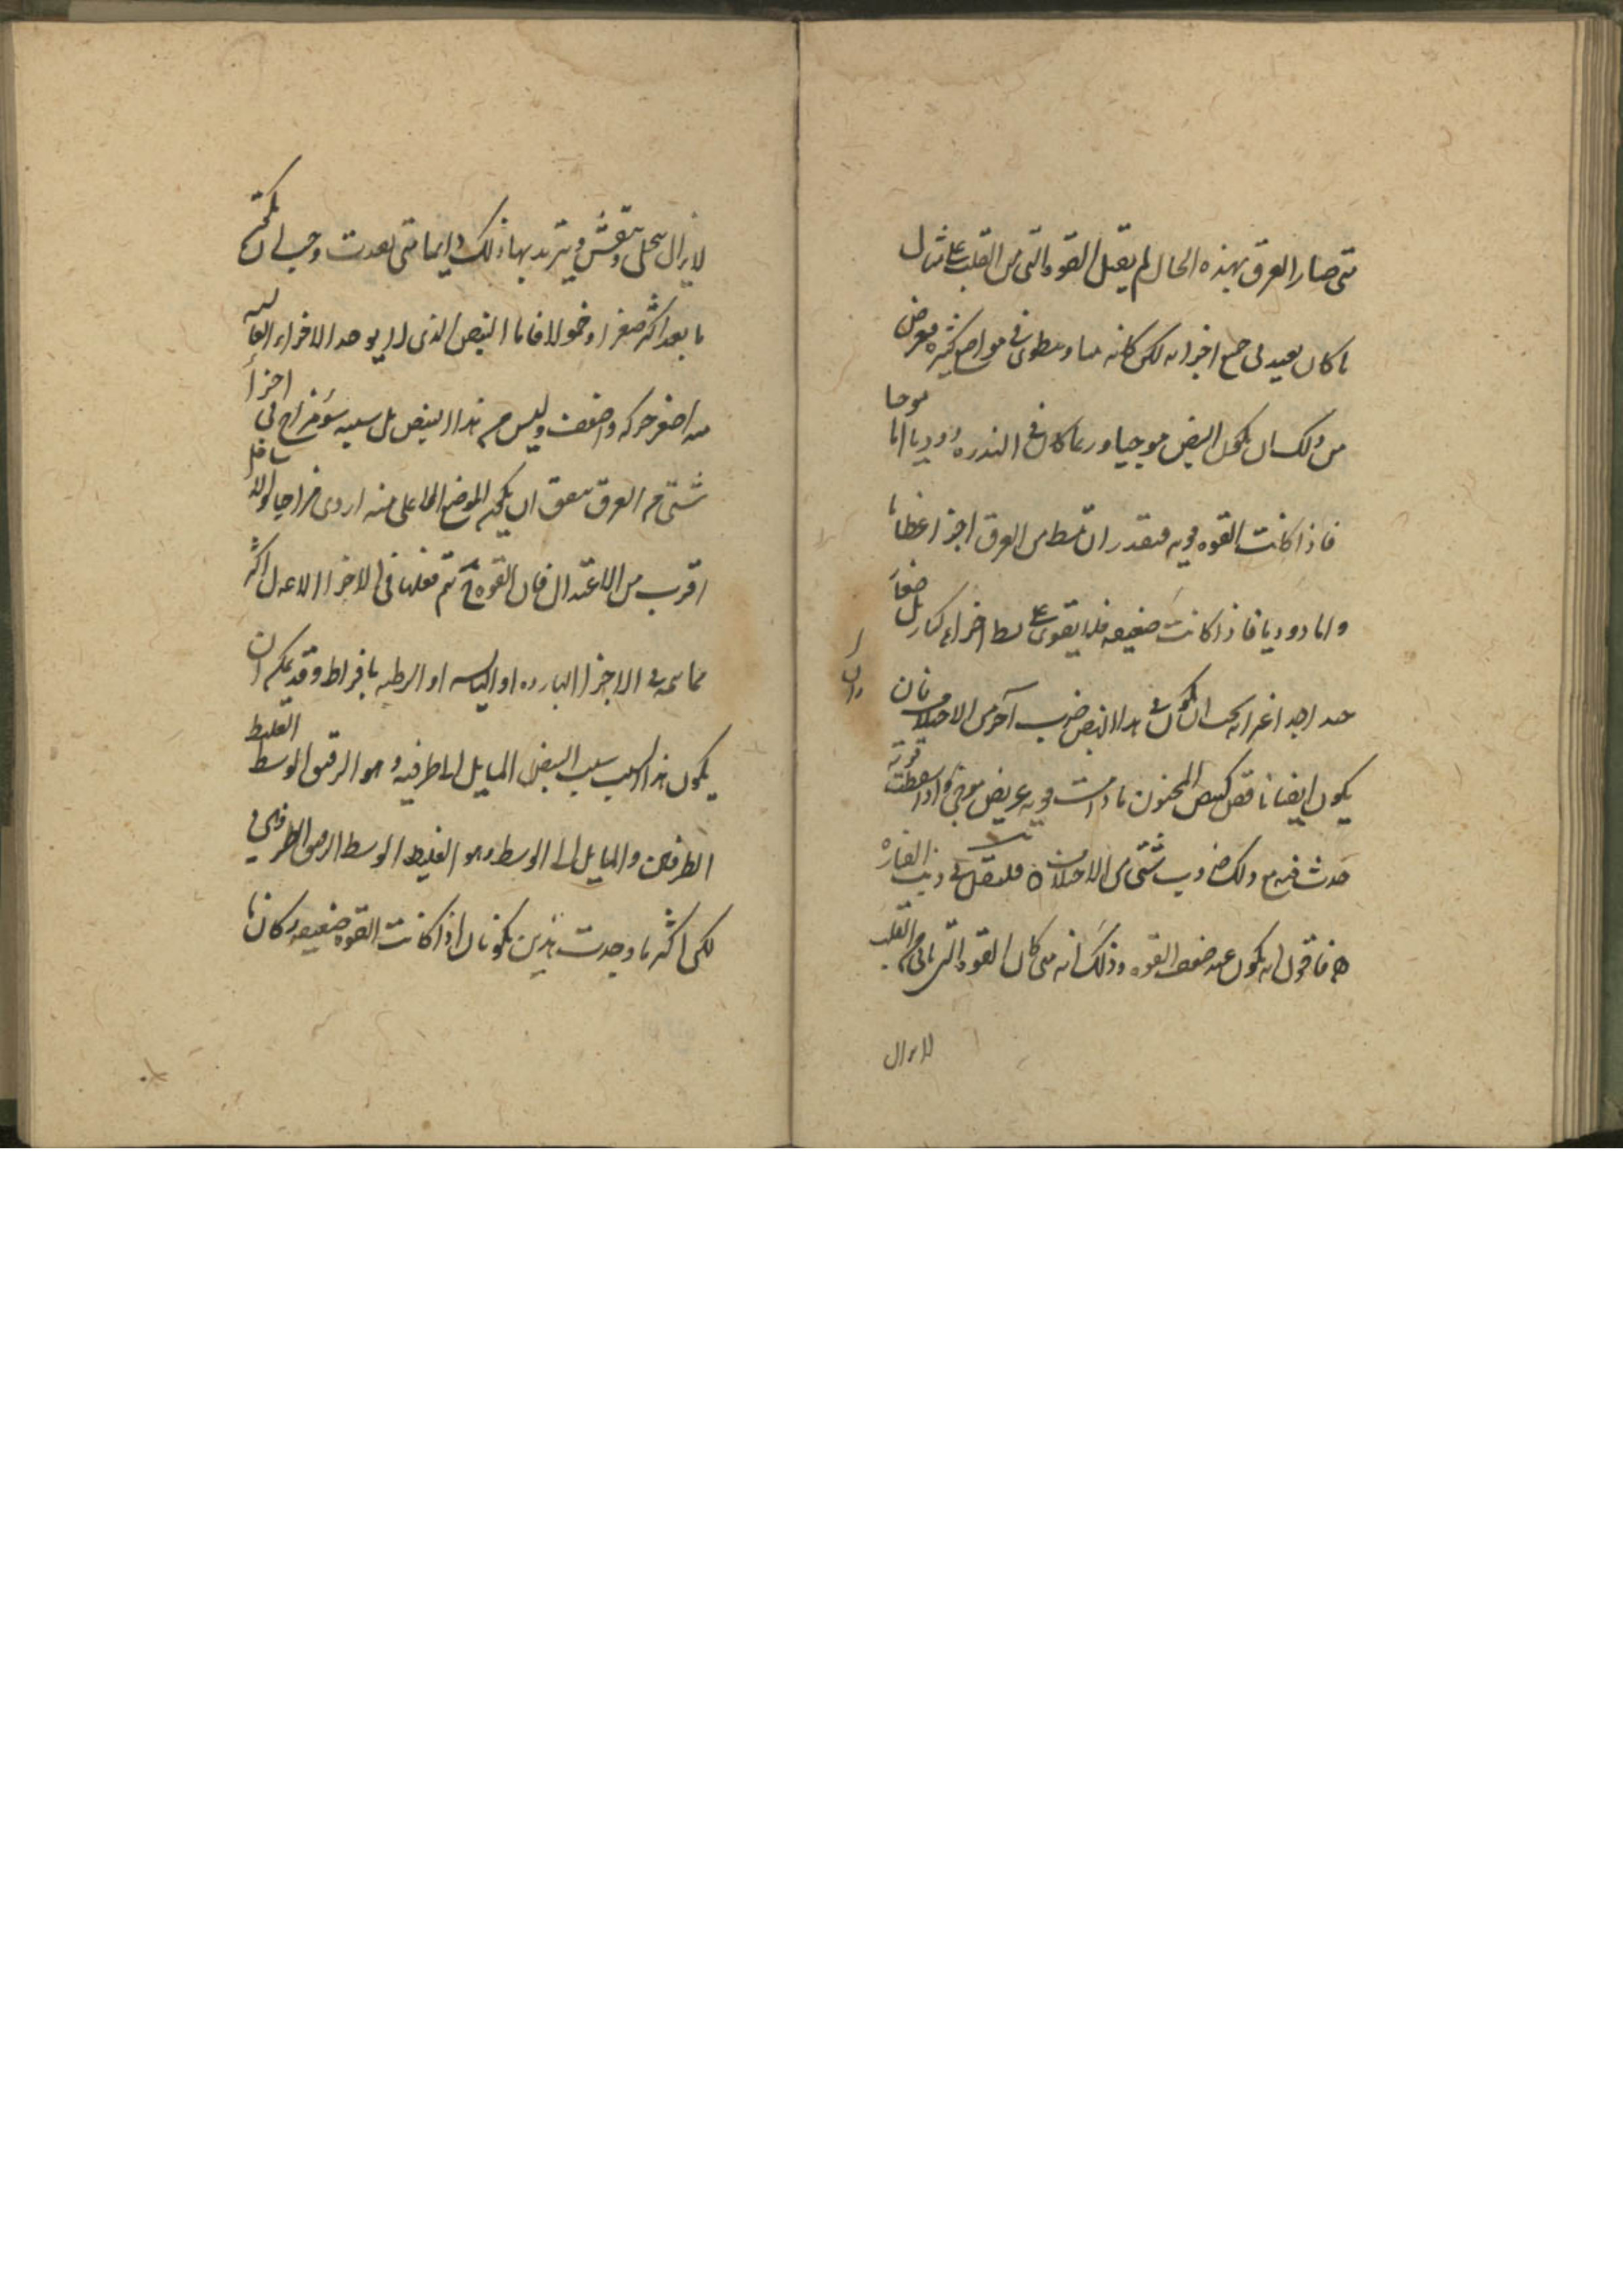 متى صار العرق بهذه الحال لم يقبل القوة التى من القلب على مثال
ما كان بعيد لى جميع اجزائه لكن كانه ينطوى فى مواضع كثيره فيعرض
من ذلك ان يكون النبض موجيا وربما كان فى الندره دوديا اما موجيا
فاذا كانت القوه قويه فتقدر ان تبسط من العرق اجزا عظاما
واما دوديا فاذا كانت ضعيفه فلا يقوى على بسط اجزاء كبار بل صغار
جدا جدا غير انه يجب ان يكون فى هذا النبض ضرب آخر من الاختلاف فان
يكون ايضا ناقص كنبض المجنون ما دامت قويه عريض موجى واذا سقطت قوته
حدث فيه مع ذلك ضروب شتى من الاختلاف ه فلنقل فى ذنب الفاره
ه فاقول انه يكون عند ضعف القوه وذلك انه متى كان القوه التى تاتى من القلب
لا يزال
لا يزال ينحل وينفش ويتزيد بها ذلك دايما متى بعدت وجب ان يكون
ما بعد اكثر صغرا وخمولا فاما النبض الذى لا يوجد الاجزاء العاليه
منه اصغر حركه واضعف وليس من هذا النبض بل سببه سؤ مزاج فى اجزا
شتى من العرق يتفق ان يكون الموضع الاعلى منه اردى مزاجا والاسافل
اقرب من الاعتدال فان القوه ح يتم فعلها فى الاجزا الاعدل اكثر
مما يتم فى الاجزا البارده او اليابسه او الرطبه بافراط وقد يمكن ان
يكون هذا السبب سبب النبض المايل الى طرفيه وهو الرقيق الوسط الغليظ
الطرفين والمايل الى الوسط وهو الغليظ الوسط الرقيق الطرفين
لكن اكثر ما وجدت هذين يكونان اذا كانت القوه ضعيفه وكانا